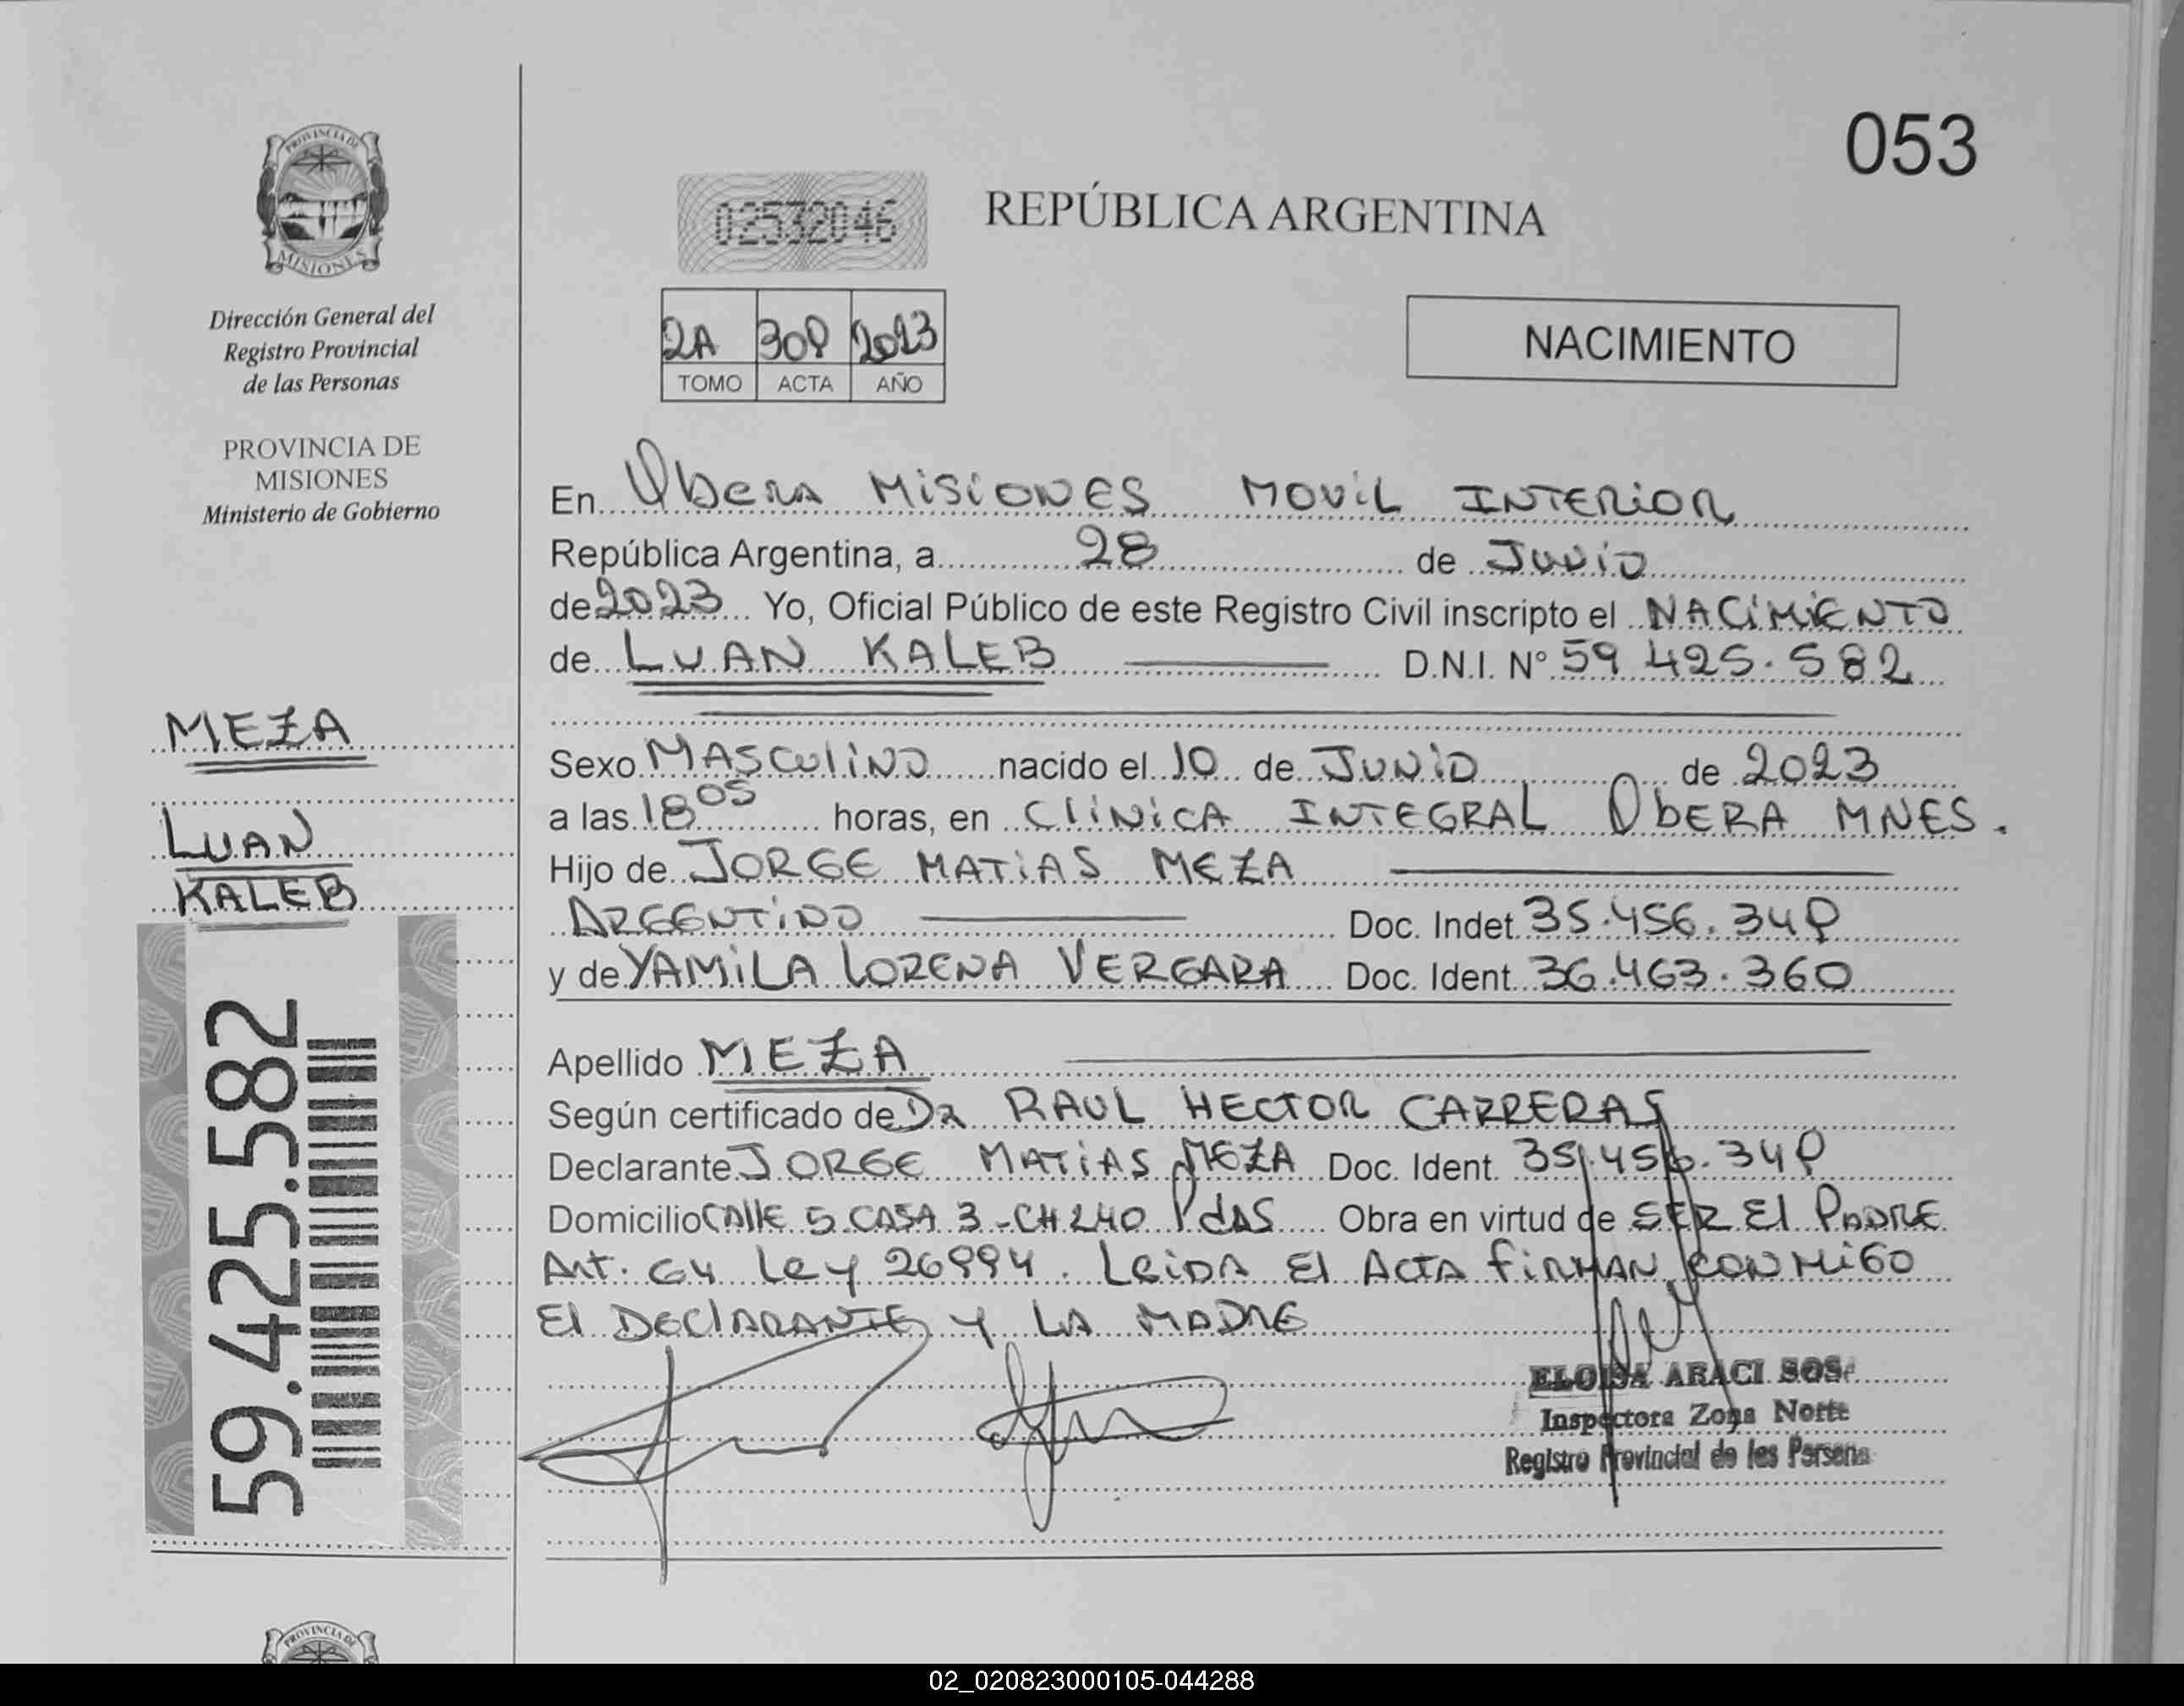 053
PROVINCIA DE
MISIONES
Dirección General del
Registro Provincial
de las Personas
PROVINCIA DE
MISIONES
Ministerio de Gobierno
MEZA
LUAN
KALEB
59.425.582
02532046
REPÚBLICA ARGENTINA
2A 309 2023
TOMO ACTA AÑO
NACIMIENTO
En Obera Misiones MOVIL INTERIOR
República Argentina, a 28 de Junio
de 2023 Yo, Oficial Público de este Registro Civil inscripto el NACIMIENTO
de LUAN KALEB D.N.I. N° 59 425.582
Sexo MASCULINO nacido el 10 de JUNIO de 2023
a las 18 05 horas, en CLINICA INTEGRAL ObERA MNES.
Hijo de JORGE MATIAS MEZA
ARGENTINO Doc. Indet. 35.456.349
y de YAMILA LORENA VERGARA Doc. Ident. 36.463.360
Apellido MEZA
Según certificado de Dr RAUL HECTOR CARRERAS
Declarante JORGE MATIAS MEZA Doc. Ident. 35.456.349
Domicilio CAllE 5 CASA 3 - CH 240 PdAS Obra en virtud de SER El PADRE
Art. 64 Ley 26994. LEIDA El ACTA FIRMAN CONMIGO
El DEClARANTE Y LA MADRE
ELOISA ARACI SOS
Inspectora Zona Norte
Registro Provincial de las Persona
PROVINCIA DE
02_020823000105-044288